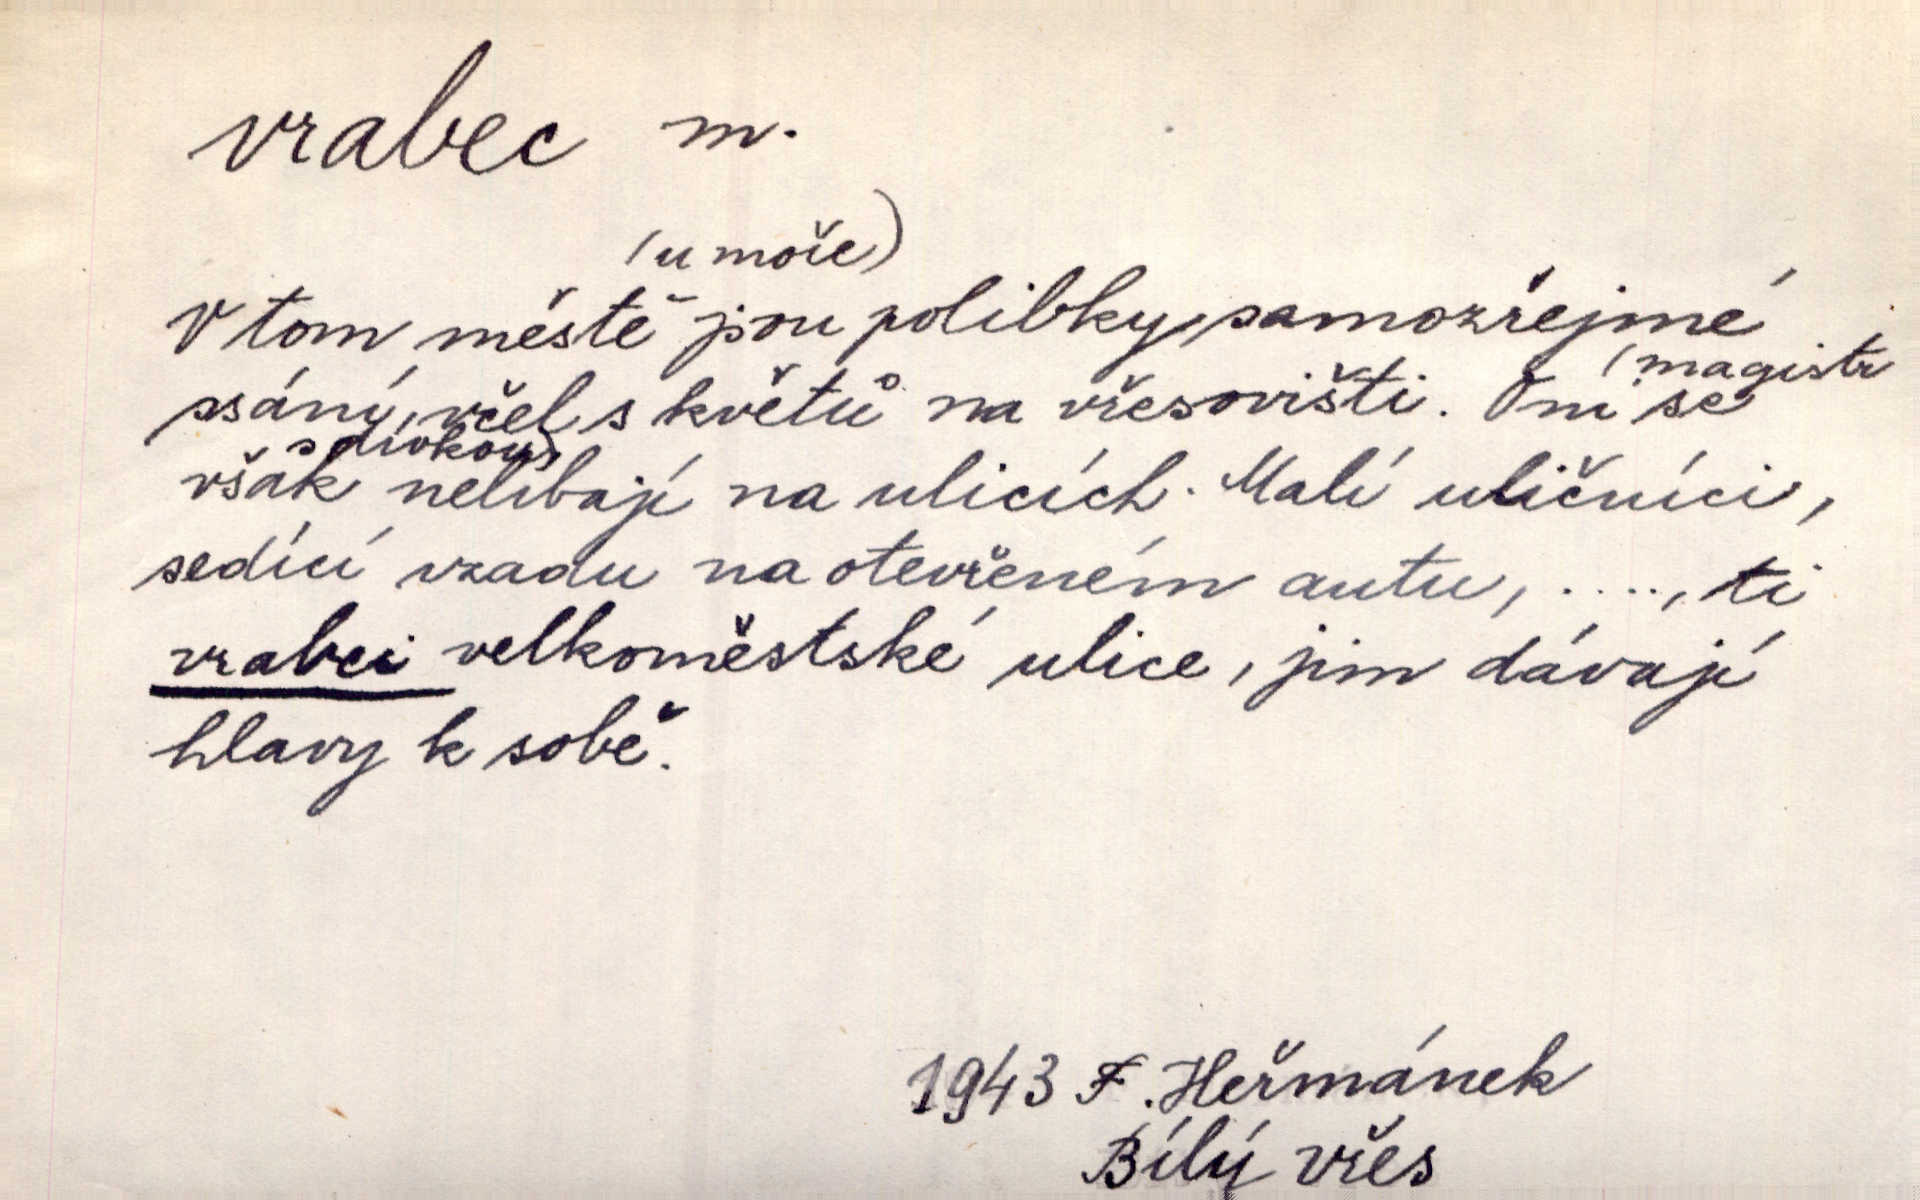 vrabec m.
(u moře)
V tom městě jsou polibky, samozřejmé
ssání včel s květů na vřesovišti. Oni se
(magistr
s dívkou)
však nelíbají na ulicích. Malí uličníci,
sedící vzadu na otevřeném autu, ...., ti
vrabci velkoměstské ulice, jim dávají
hlavy k sobě.
1943 F. Heřmánek
Bílý vřes